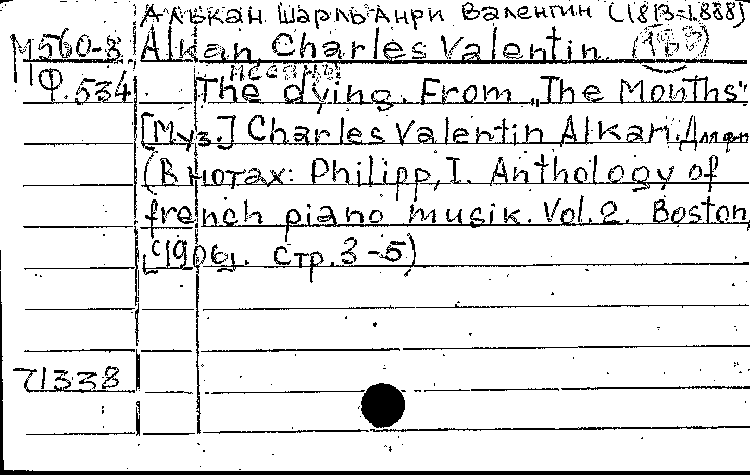 Алькан Шарль Анри Валентин (1813-1888)
М560-3 Alkan Charles Valentin
Ф.534 The dying. From „The Months".
[Муз.] Charles Valentin Alkan. Для фп
(В нотах: Philipp, I. Anthology of
french piano musik. Vol. 2. Boston,
[c1906]. стр. 3-5)
71338